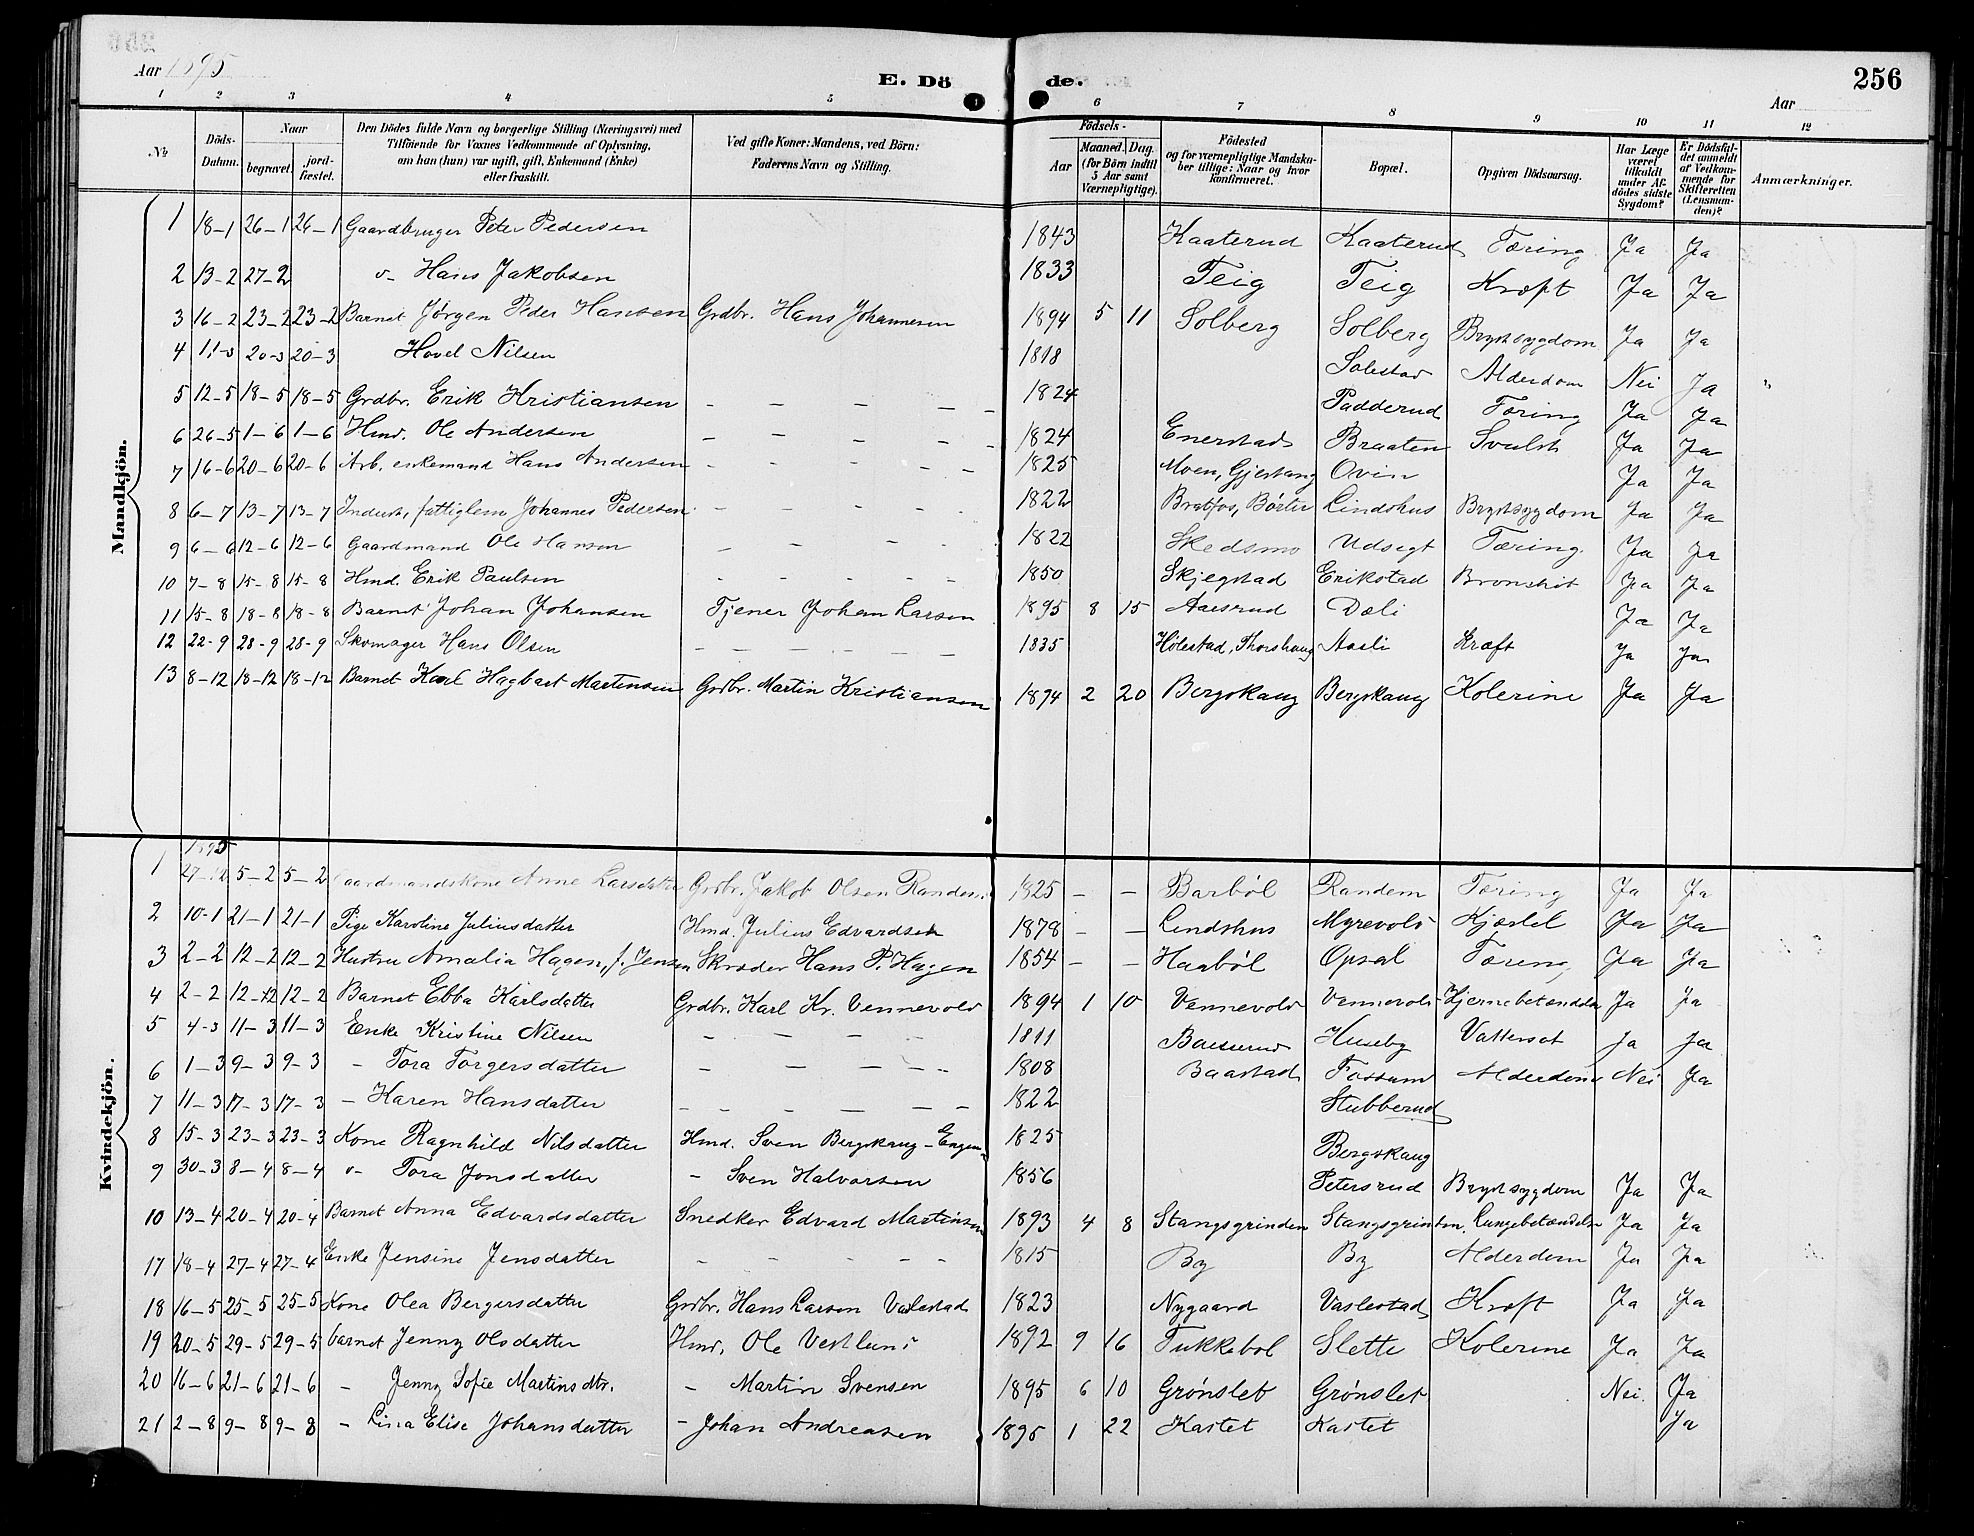 Aar 1895
E. Döde.
256
Aar
1 2 3 4 5 6 7 8 9 10 11 12
No
Döds-Datum.
Naar begravet. jordfæstet.
Den Dödes fulde Navn og borgerlige Stilling (Næringsvei) med Tilföiende for Voxnes Vedkommende af Oplysning, om han (hun) var ugift, gift, Enkemand (Enke) eller fraskilt.
Ved gifte Koner: Mandens, ved Börn: Faderens Navn og Stilling.
Födsels- Aar Maaned. Dag. (for Börn indtil 5 Aar samt Værnepligtige).
Födested og for værnepligtige Mandskaber tillige: Naar og hvor konfirmeret.
Bopæl.
Opgiven Dödsaarsag.
Har Læge været tilkaldt under Afdödes sidste Sygdom?
Er Dödsfaldet anmeldt af Vedkommende for Skifteretten (Lensmanden)?
Anmærkninger.
Mandkjön.
1 18-1 26-1 26-1 Gaardbruger Peter Pedersen 1843 Kaaterud Kaaterud Tæring Ja Ja
2 13-2 27-2 o- Hans Jakobsen 1833 Teig Teig Kræft Ja Ja
3 16-2 23-2 23-2 Barnet Jørgen Peder Hansen Grdbr. Hans Johannesen 1894 5 11 Solberg Solberg Brystsygdom Ja Ja
4 11-3 20-3 20-3 Hovel Nilsen 1818 Solestad Alderdom Nei Ja "
5 12-5 18-5 18-5 Grdbr. Erik Kristiansen - - - - - 1824 Padderud Tæring Ja Ja
6 26-5 1-6 1-6 Hmd. Ole Andersen - - - - - 1824 Enerstad Braaten Svulst Ja Ja
7 16-6 20-6 20-6 Arb. enkemand Hans Andersen - - - - - 1825 Moen, Gjestang Ovin Ja Ja
8 6-7 13-7 13-7 Inderst, fattiglem Johannes Pedersen - - - - - 1822 Bratfos, Børter Lindshus Brystsygdom Ja Ja
9 6-6 12-6 12-6 Gaardmand Ole Hansen - - - - - 1822 Skedsmo Udsegt Tæring. Ja Ja
10 7-8 15-8 15-8 Hmd. Erik Paulsen - - - - - 1850 Skjegstad Erikstad Bronkit Ja Ja
11 15-8 18-8 18-8 Barnet Johan Johansen Tjener Johan Larsen 1895 8 15 Aaesrud Dæli Ja Ja
12 22-9 28-9 28-9 Skomager Hans Olsen - - - - - 1835 Hølestad, Thorshaug Aasli Kræft Ja Ja
13 8-12 18-12 18-12 Barnet Karl Hagbart Martinsen Grdbr. Martin Kristiansen 1894 2 20 Bergskaug Bergskaug Kolerine Ja Ja
Kvindekjön.
1895
1 27-12 5-2 5-2 Gaardmandskone Anne Larsdatter Grdbr. Jakob Olsen Randem 1825 - - Barbøl Randem Tæring Ja Ja
2 10-1 21-1 21-1 Pige Karoline Juliusdatter Hmd. Julius Edvardsen 1878 - - Lindshus Myrevold Kjertel Ja Ja
3 2-2 12-2 12-2 Hustru Amalia Hagen, f. Jensen Skræder Hans P. Hagen 1854 - - Haabøl Opsal Tæring Ja Ja
4 2-2 12-2 12-2 Barnet Ebba Karlsdatter Grdbr. Karl Kr. Vennevold 1894 1 10 Vennevold Vennevold Hjernebetændelse Ja Ja
5 4-3 11-3 11-3 Enke Kristine Nilsen - - - - 1811 Huseby Vattersot Ja Ja
6 1-3 9-3 9-3 - Tora Torgersdatter - - - - - 1808 Baastad Fossum Alderdom Nei Ja
7 11-3 17-3 17-3 - Karen Hansdatter - - - - - - 1822 Stubberud
8 15-3 23-3 23-3 Kone Ragnhild Nilsdatter Hmd. Sven Bergskaug-Engen 1825 Bergskaug
9 30-3 8-4 8-4 o- Tora Jonsdatter - Sven Halvorsen 1856 Petersrud Brystsygdom Ja Ja
10 13-4 20-4 20-4 Barnet Anna Edvardsdatter Snedker Edvard Martinsen 1893 4 8 Stangsgrinden Stangsgrinden Lungebetændelse Ja Ja
17 18-4 27-4 27-4 Enke Jensine Jensdatter - - - - - 1815 By By Alderdom Ja Ja
18 16-5 25-5 25-5 Kone Olea Bergersdatter Grdbr. Hans Larsen Vaslestad 1823 Nygaard Vaslestad Kræft Ja Ja
19 20-5 29-5 29-5 barnet Jenny Olsdatter Hmd. Ole Vestlund 1892 9 16 Tukkebøl Slette Kolerine Ja Ja
20 16-6 21-6 21-6 - Jenny Sofie Martinsdtr. - Martin Svensen 1895 6 10 Grønslet Grønslet Nei. Ja
21 2-8 9-8 9-8 - Lina Elise Johansdatter - Johan Andreasen 1895 1 22 Kastet Kastet Ja